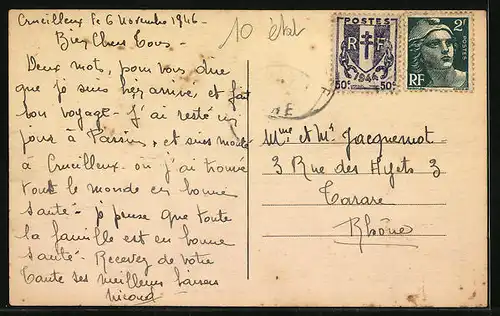 Crucilleux le 6 Novembre 1946 -
Bien Chers Tous -
Deux mots, pour vous dire
que je suis bien arrivé, et fait
bon voyage - J'ai resté un
jour à , et suis
à Crucilleux - où j'ai trouvé
tout le monde en bonne
santé - je pense que toute
la famille est en bonne
santé - Recevez de votre
tante ses meilleurs baisers
10 état
POSTES
RF
1944
50c 50c
2F
POSTES
RF
Mme et Mr Jacquemot
3 Rue des Ayets 3
Tarare
Rhône